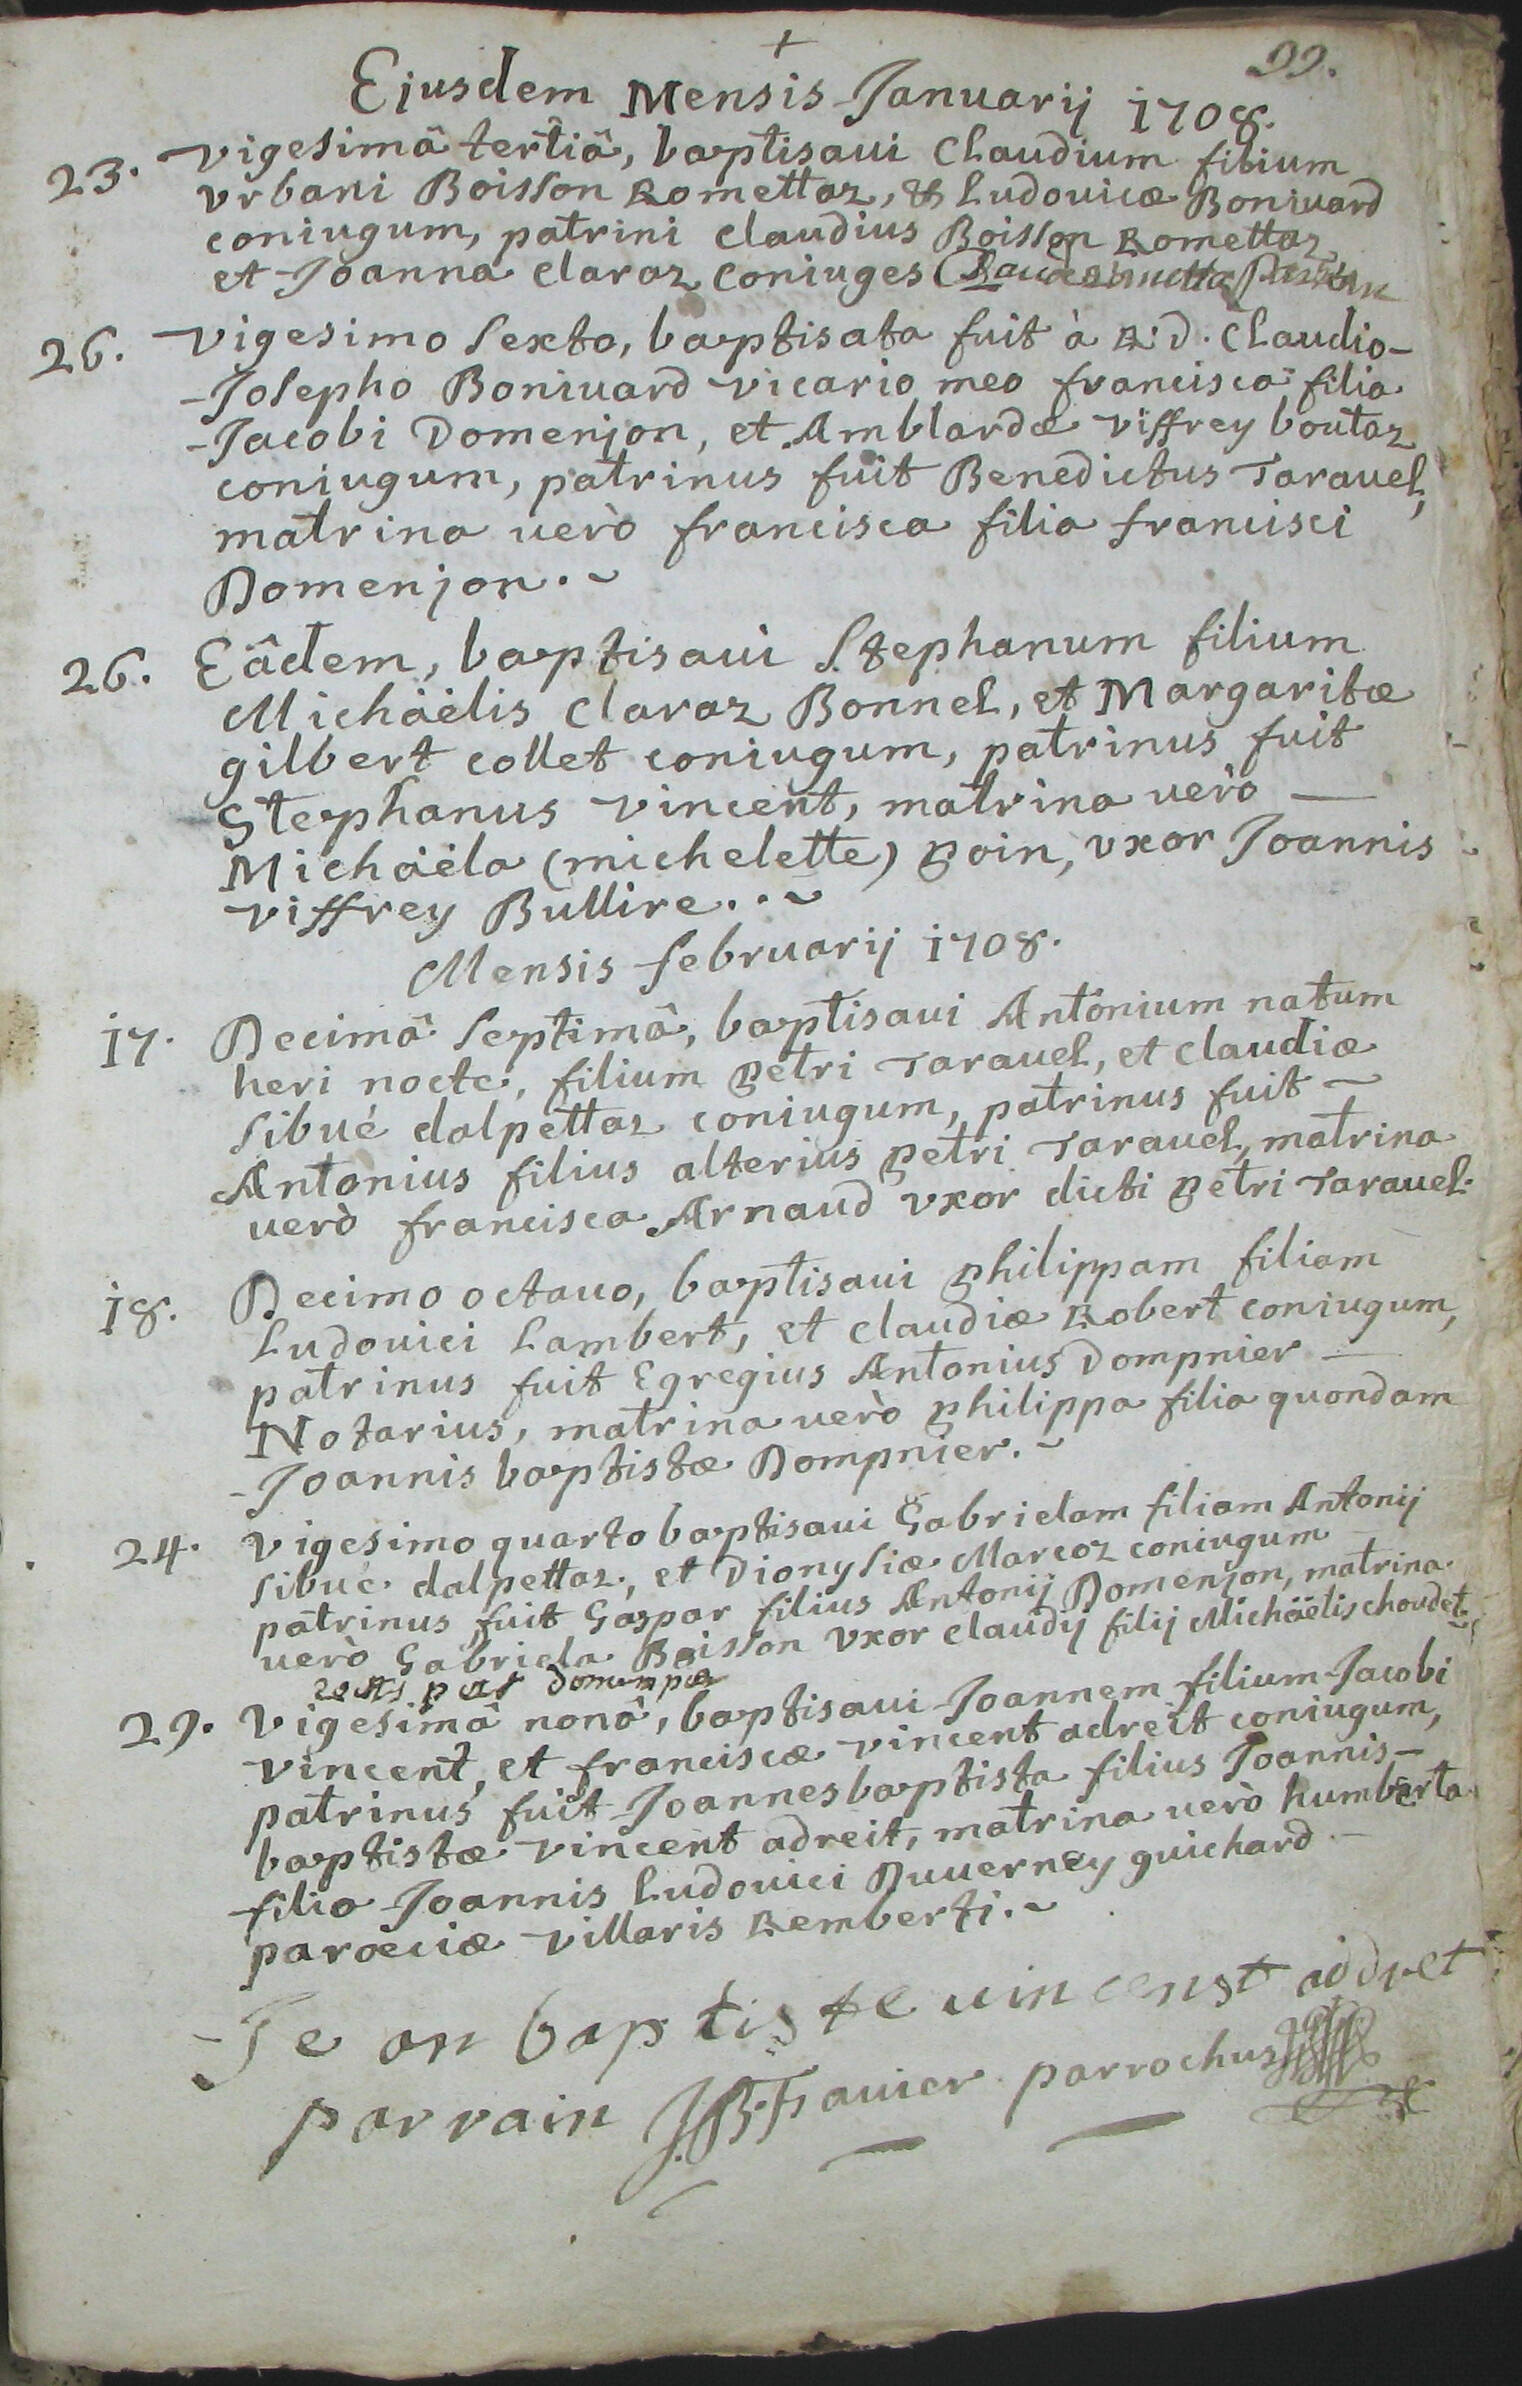 +
99.
Ejusdem Mensis Januarij 1708.
23. Vigesimâ tertiâ, baptisaui Claudium filium
Vrbani Boisson Romettaz, & Ludouicæ Boniuard
coniugum, patrini Claudius Boisson Romettaz
et Joanna Claraz coniuges
26. Vigesimo Sexto, baptisata fuit à R.D. Claudio-
-Josepho Boniuard vicario meo francisca filia
Jacobi Domenjon, et Amblardæ Viffrey boutaz
coniugum, patrinus fuit Benedictus Tarauel,
matrina uerò francisca filia francisci
Domenjon. ~
26. Eâdem, baptisaui Stephanum filium
Michäélis Claraz Bonnel, et Margaritæ
gilbert collet coniugum, patrinus fuit
Stephanus Vincent, matrina uerò —
Michäéla (michelette) Poin, vxor Joannis
Viffrey Bullire. . ~
Mensis februarij 1708.
17. Decimâ Septimâ, baptisaui Antonium natum
heri nocte, filium Petri Tarauel, et Claudiæ
Sibué dalpettaz coniugum, patrinus fuit ~
Antonius filius alterius Petri Tarauel, matrina
uerò francisca Arnaud vxor dicti Petri Tarauel.
18. Decimo octauo, baptisaui Philippam filiam
Ludouici Lambert, et Claudiæ Robert coniugum,
patrinus fuit Egregius Antonius Dompnier —
Notarius, matrina uerò Philippa filia quondam
Joannis baptistæ Dompnier. ~
24. Vigesimo quarto baptisaui Gabrielam filiam Antonij
Sibué dalpettaz, et Dionysiæ Marcoz coniugum
patrinus fuit Gaspar filius Antonij Domenjon, matrina
uerò Gabriela Boisson Vxor Claudij filij Michäélis choudet.
29. Vigesimâ nonâ, baptisaui Joannem filium Jacobi
Vincent, et franciscæ Vincent adreit coniugum,
patrinus fuit Joannesbaptista filius Joannis-
baptistæ Vincent adreit, matrina uerò humberta
filia Joannis Ludouici Duuerney guichard —
paroeciæ Villaris Remberti. ~
Je an baptiste uin censt addret
parrain J.B. Frauier parrochus